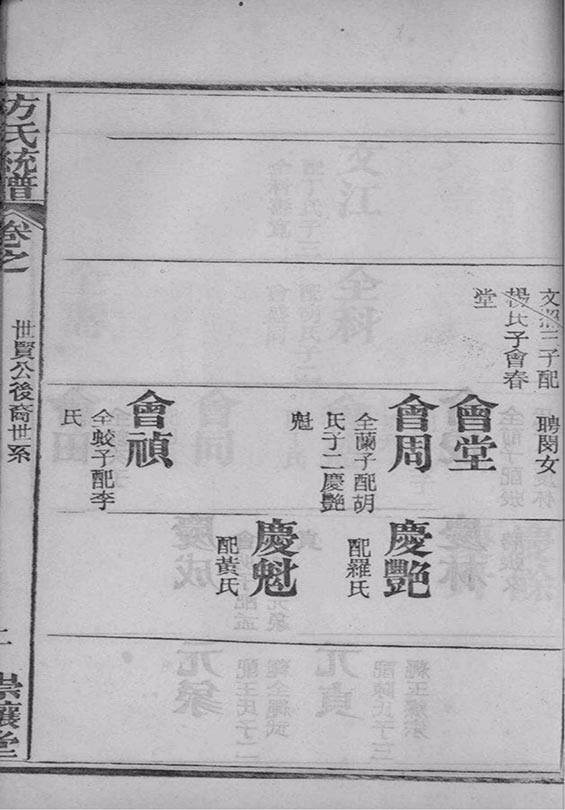 文
三子配
氏子會春
堂
聘閔女
會堂
會周
全蘭子配胡
氏子二慶艷
魁
會禎
全蛟子配李
氏
慶艷
配羅氏
慶魁
配黃氏
方氏統譜
卷之
世賢公後裔世系